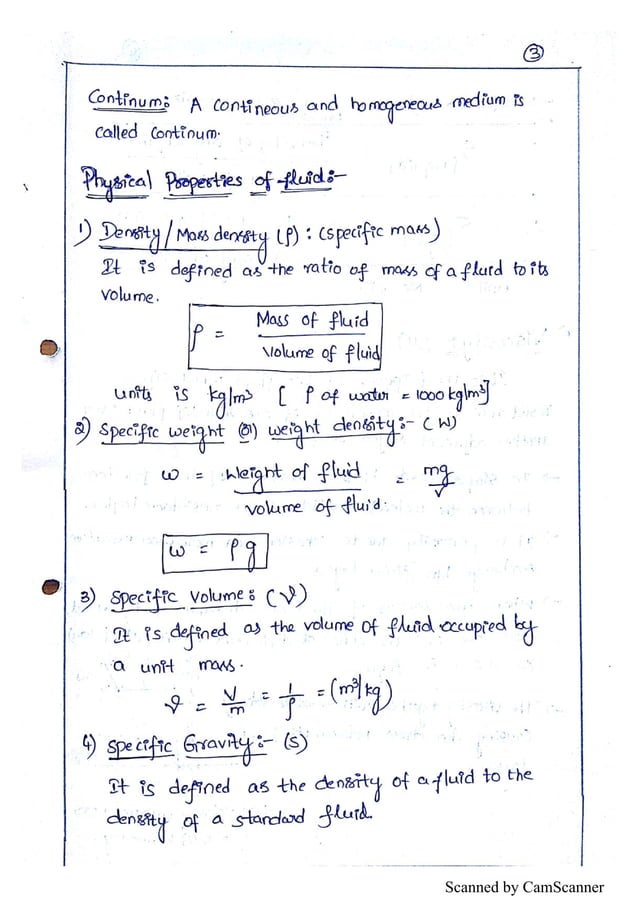 3
Continum: A contineous and homogeneous medium is
called continum.
Physical Properties of fluid:-
1) Density/Mass density (ρ): (specific mass)
It is defined as the ratio of mass of a fluid to its
volume.
ρ = Mass of fluid
volume of fluid
units is kg/m³ [ ρ of water = 1000 kg/m³]
2) Specific weight (or) weight density:- (W)
ω = Weight of fluid = mg
volume of fluid. v
ω = ρg
3) Specific Volume: (V)
It is defined as the volume of fluid occupied by
a unit mass.
v = V/m = 1/ρ = (m³/kg)
4) Specific Gravity:- (S)
It is defined as the density of a fluid to the
density of a standard fluid.
Scanned by CamScanner